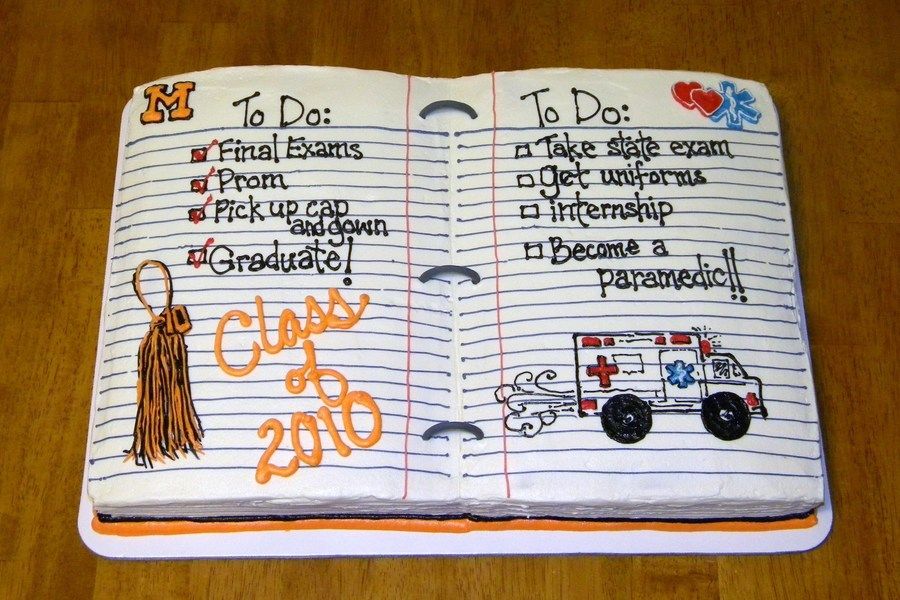 M
To Do:
Final Exams
Prom
Pick up cap
and gown
Graduate!
10
Class
of
2010
To Do:
Take state exam
Get uniforms
internship
Become a
paramedic!!